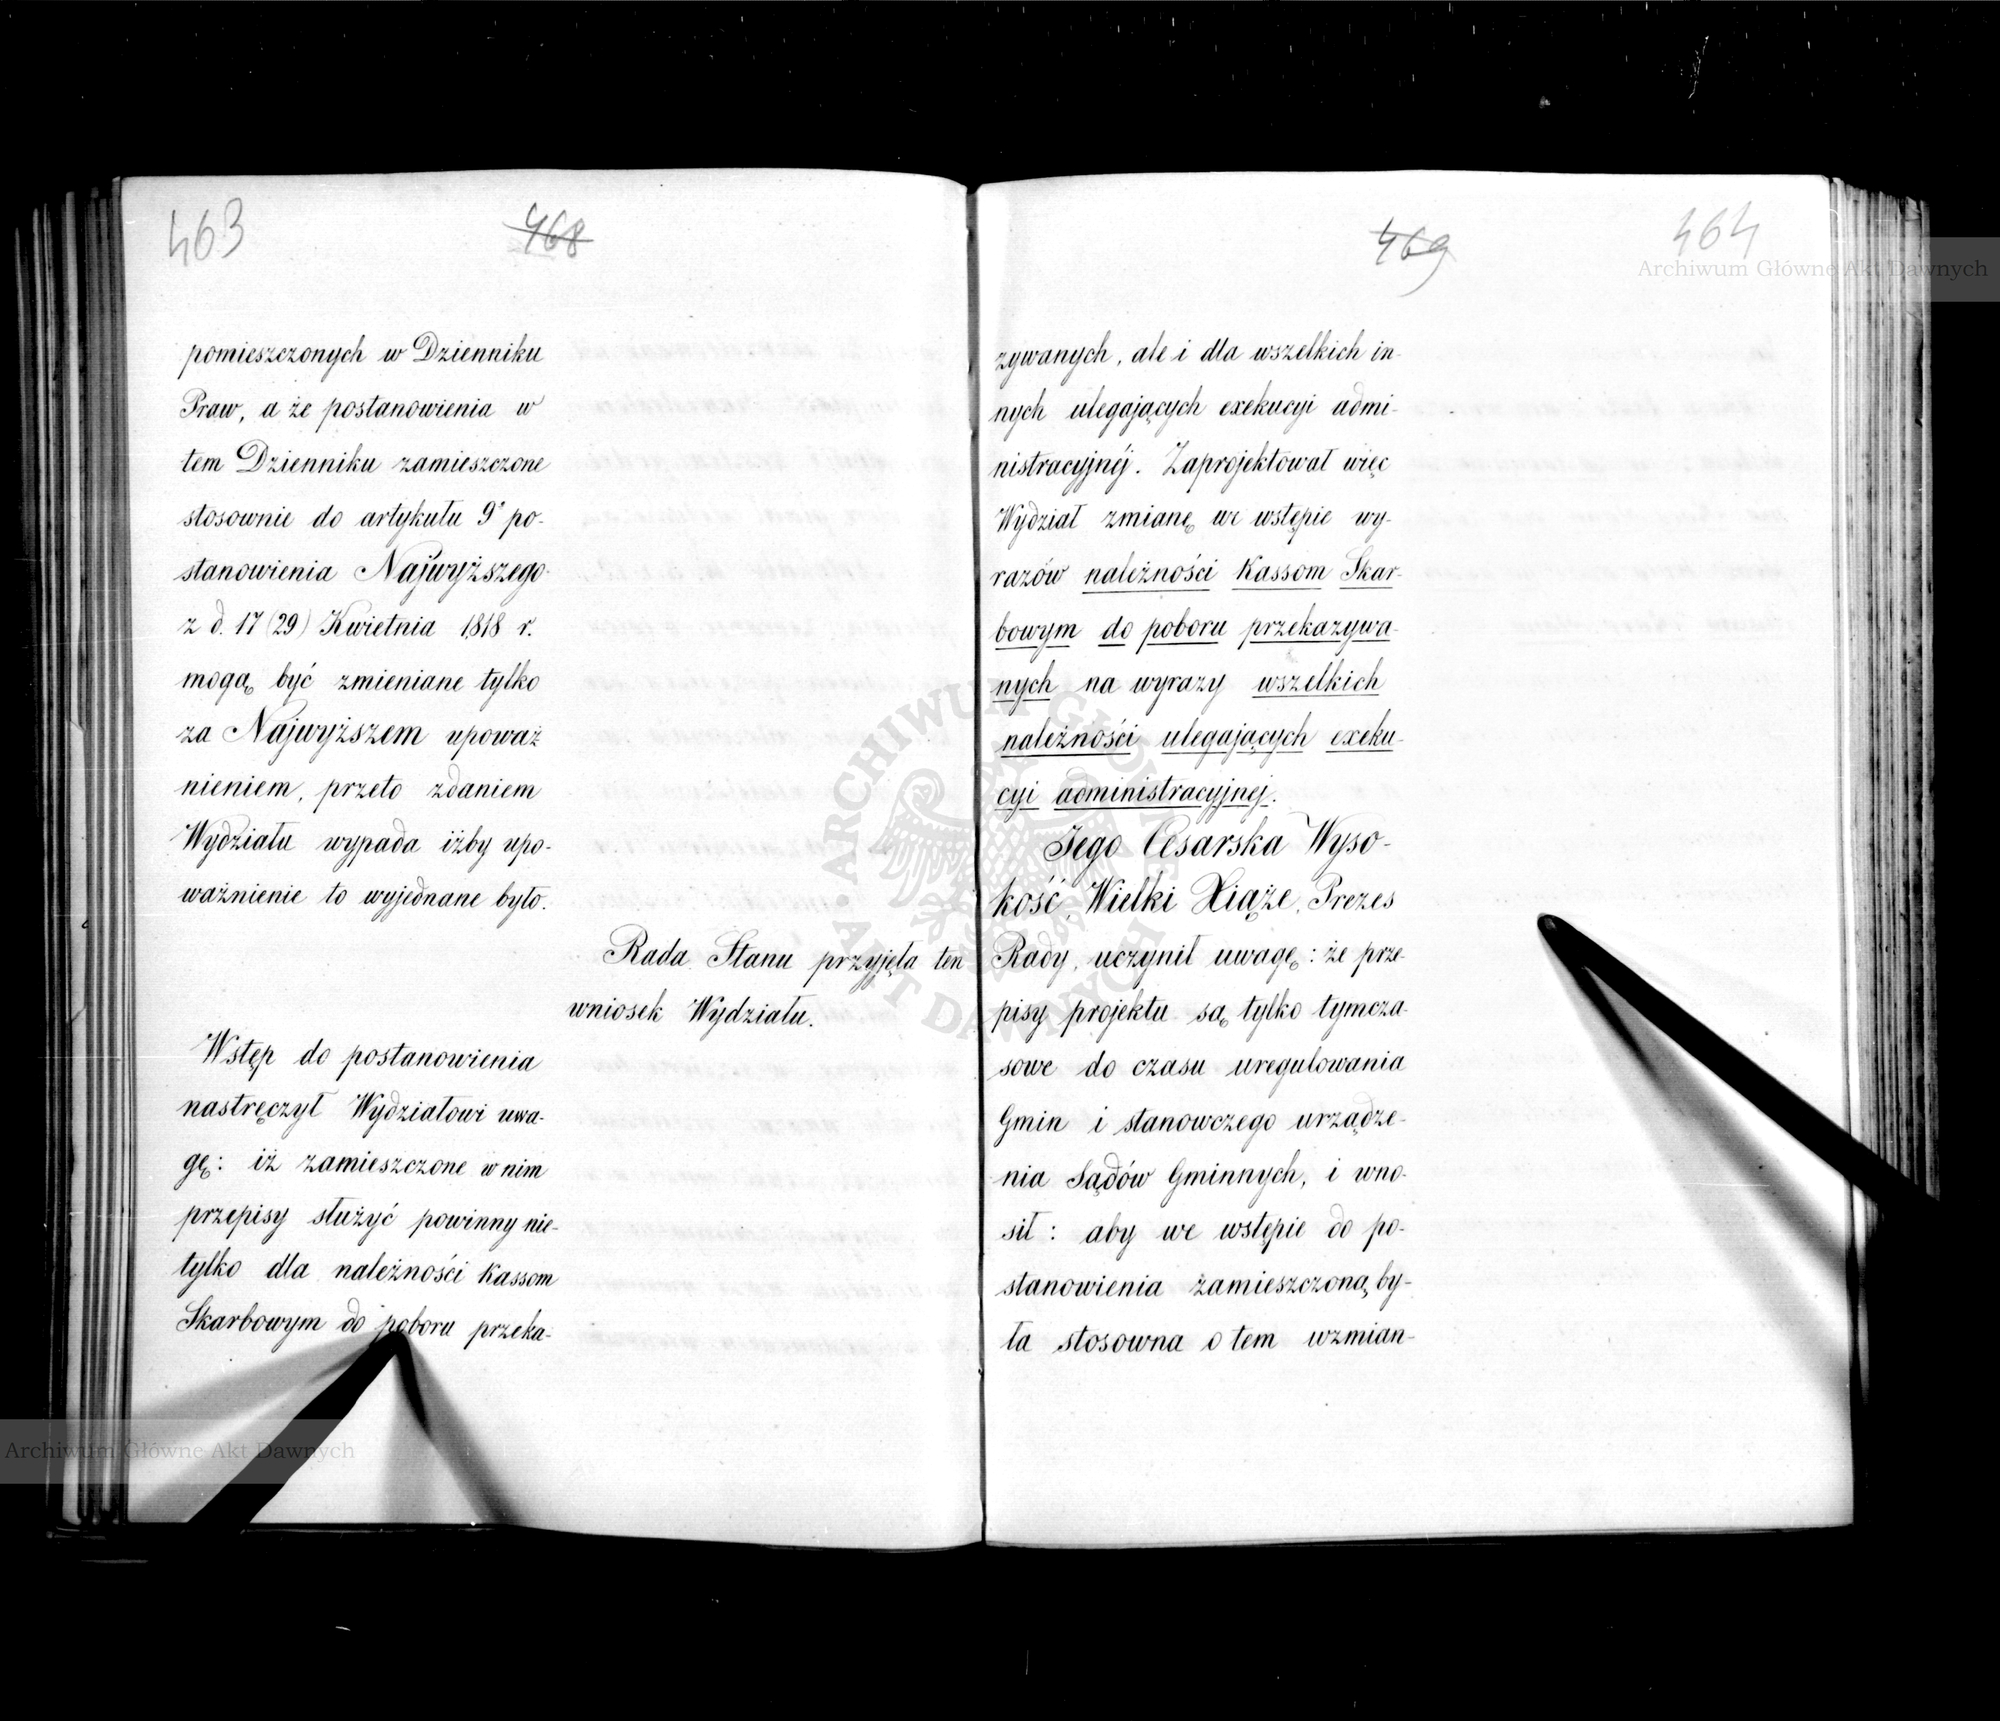 463
468
pomieszczonych w Dzienniku
Praw, a że postanowienia w
tem Dzienniku zamieszczone
stosownie do artykułu 9° po-
stanowienia Najwyższego
z d. 17 (29) Kwietnia 1818 r.
mogą być zmieniane tylko
za Najwyższem upoważ
nieniem, przeto zdaniem
Wydziału wypada iżby upo-
ważnienie to wyjednane było.
Rada Stanu przyjęła ten
wniosek Wydziału.
Wstęp do postanowienia
nastręczył Wydziałowi uwa-
gę: iż zamieszczone w nim
przepisy służyć powinny nie-
tylko dla należności Kassom
Skarbowym do poboru przeka-
469
464
zywanych, ale i dla wszelkich in-
nych ulegających exekucyi admi-
nistracyjnéj. Zaprojektował więc
Wydział zmianę we wstępie wy-
razów należności Kassom Skar-
bowym do poboru przekazywa-
nych na wyrazy wszelkich
należności ulegających exeku-
cyi administracyjnej.
Jego Cesarska Wyso-
kość, Wielki Xiąże, Prezes
Rady, uczynił uwagę: że prze-
pisy projektu są tylko tymcza-
sowe do czasu uregulowania
Gmin i stanowczego urządze-
nia Sądów Gminnych, i wno-
sił: aby we wstępie do po-
stanowienia zamieszczoną by-
ła stosowna o tem wzmian-
Archiwum Główne Akt Dawnych
Archiwum Główne Akt Dawnych
ARCHIWUM GŁÓWNE AKT DAWNYCH